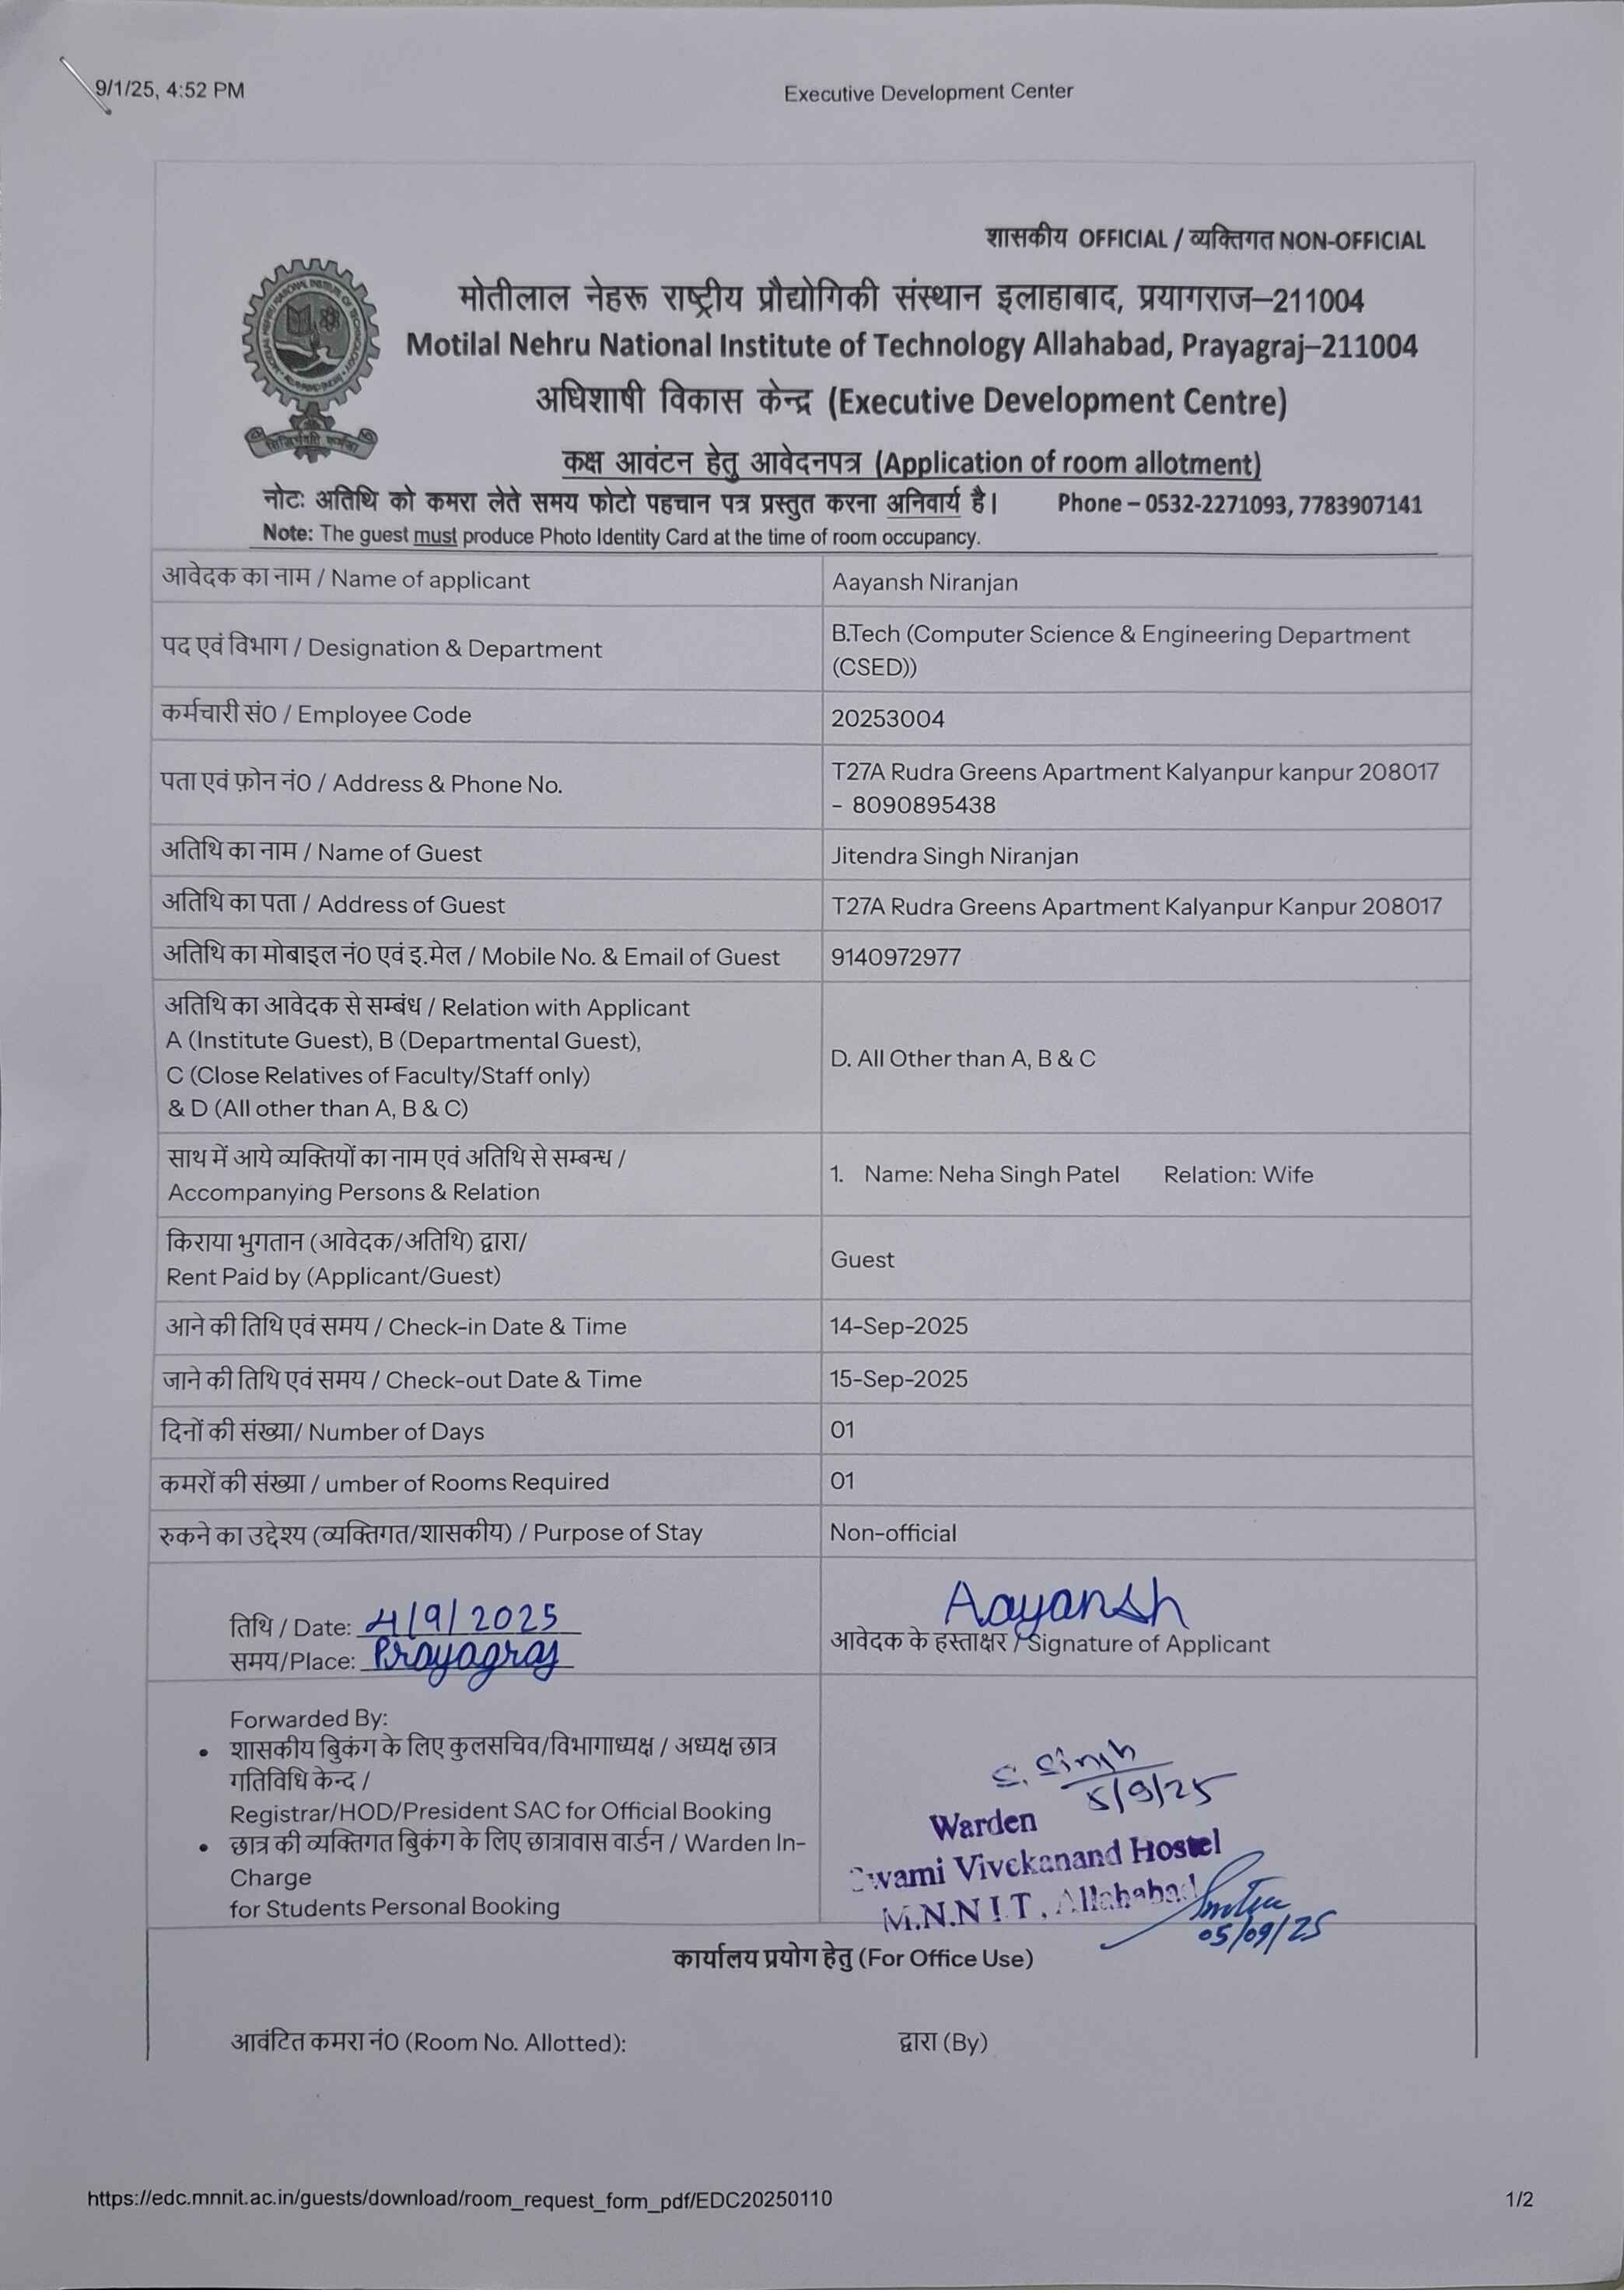 9/1/25, 4:52 PM
Executive Development Center
शासकीय OFFICIAL / व्यक्तिगत NON-OFFICIAL
मोतीलाल नेहरू राष्ट्रीय प्रौद्योगिकी संस्थान इलाहाबाद, प्रयागराज–211004
Motilal Nehru National Institute of Technology Allahabad, Prayagraj–211004
अधिशाषी विकास केन्द्र (Executive Development Centre)
कक्ष आवंटन हेतु आवेदनपत्र (Application of room allotment)
नोटः अतिथि को कमरा लेते समय फोटो पहचान पत्र प्रस्तुत करना अनिवार्य है। Phone – 0532-2271093, 7783907141
Note: The guest must produce Photo Identity Card at the time of room occupancy.
आवेदक का नाम / Name of applicant
Aayansh Niranjan
पद एवं विभाग / Designation & Department
B.Tech (Computer Science & Engineering Department
(CSED))
कर्मचारी सं0 / Employee Code
20253004
पता एवं फ़ोन नं0 / Address & Phone No.
T27A Rudra Greens Apartment Kalyanpur kanpur 208017
- 8090895438
अतिथि का नाम / Name of Guest
Jitendra Singh Niranjan
अतिथि का पता / Address of Guest
T27A Rudra Greens Apartment Kalyanpur Kanpur 208017
अतिथि का मोबाइल नं0 एवं इ.मेल / Mobile No. & Email of Guest
9140972977
अतिथि का आवेदक से सम्बंध / Relation with Applicant
A (Institute Guest), B (Departmental Guest),
C (Close Relatives of Faculty/Staff only)
& D (All other than A, B & C)
D. All Other than A, B & C
साथ में आये व्यक्तियों का नाम एवं अतिथि से सम्बन्ध /
Accompanying Persons & Relation
1. Name: Neha Singh Patel Relation: Wife
किराया भुगतान (आवेदक/अतिथि) द्वारा/
Rent Paid by (Applicant/Guest)
Guest
आने की तिथि एवं समय / Check-in Date & Time
14-Sep-2025
जाने की तिथि एवं समय / Check-out Date & Time
15-Sep-2025
दिनों की संख्या/ Number of Days
01
कमरों की संख्या / umber of Rooms Required
01
रुकने का उद्देश्य (व्यक्तिगत/शासकीय) / Purpose of Stay
Non-official
तिथि / Date: 4/9/2025
समय/Place: Prayagraj
Aayansh
आवेदक के हस्ताक्षर / Signature of Applicant
Forwarded By:
• शासकीय बुकिंग के लिए कुलसचिव/विभागाध्यक्ष / अध्यक्ष छात्र
गतिविधि केन्द /
Registrar/HOD/President SAC for Official Booking
• छात्र की व्यक्तिगत बुकिंग के लिए छात्रावास वार्डन / Warden In-
Charge
for Students Personal Booking
S. Singh
5/9/25
Warden
Swami Vivekanand Hostel
M.N.N.I.T, Allahabad
05/09/25
कार्यालय प्रयोग हेतु (For Office Use)
आवंटित कमरा नं0 (Room No. Allotted):
द्वारा (By)
https://edc.mnnit.ac.in/guests/download/room_request_form_pdf/EDC20250110
1/2